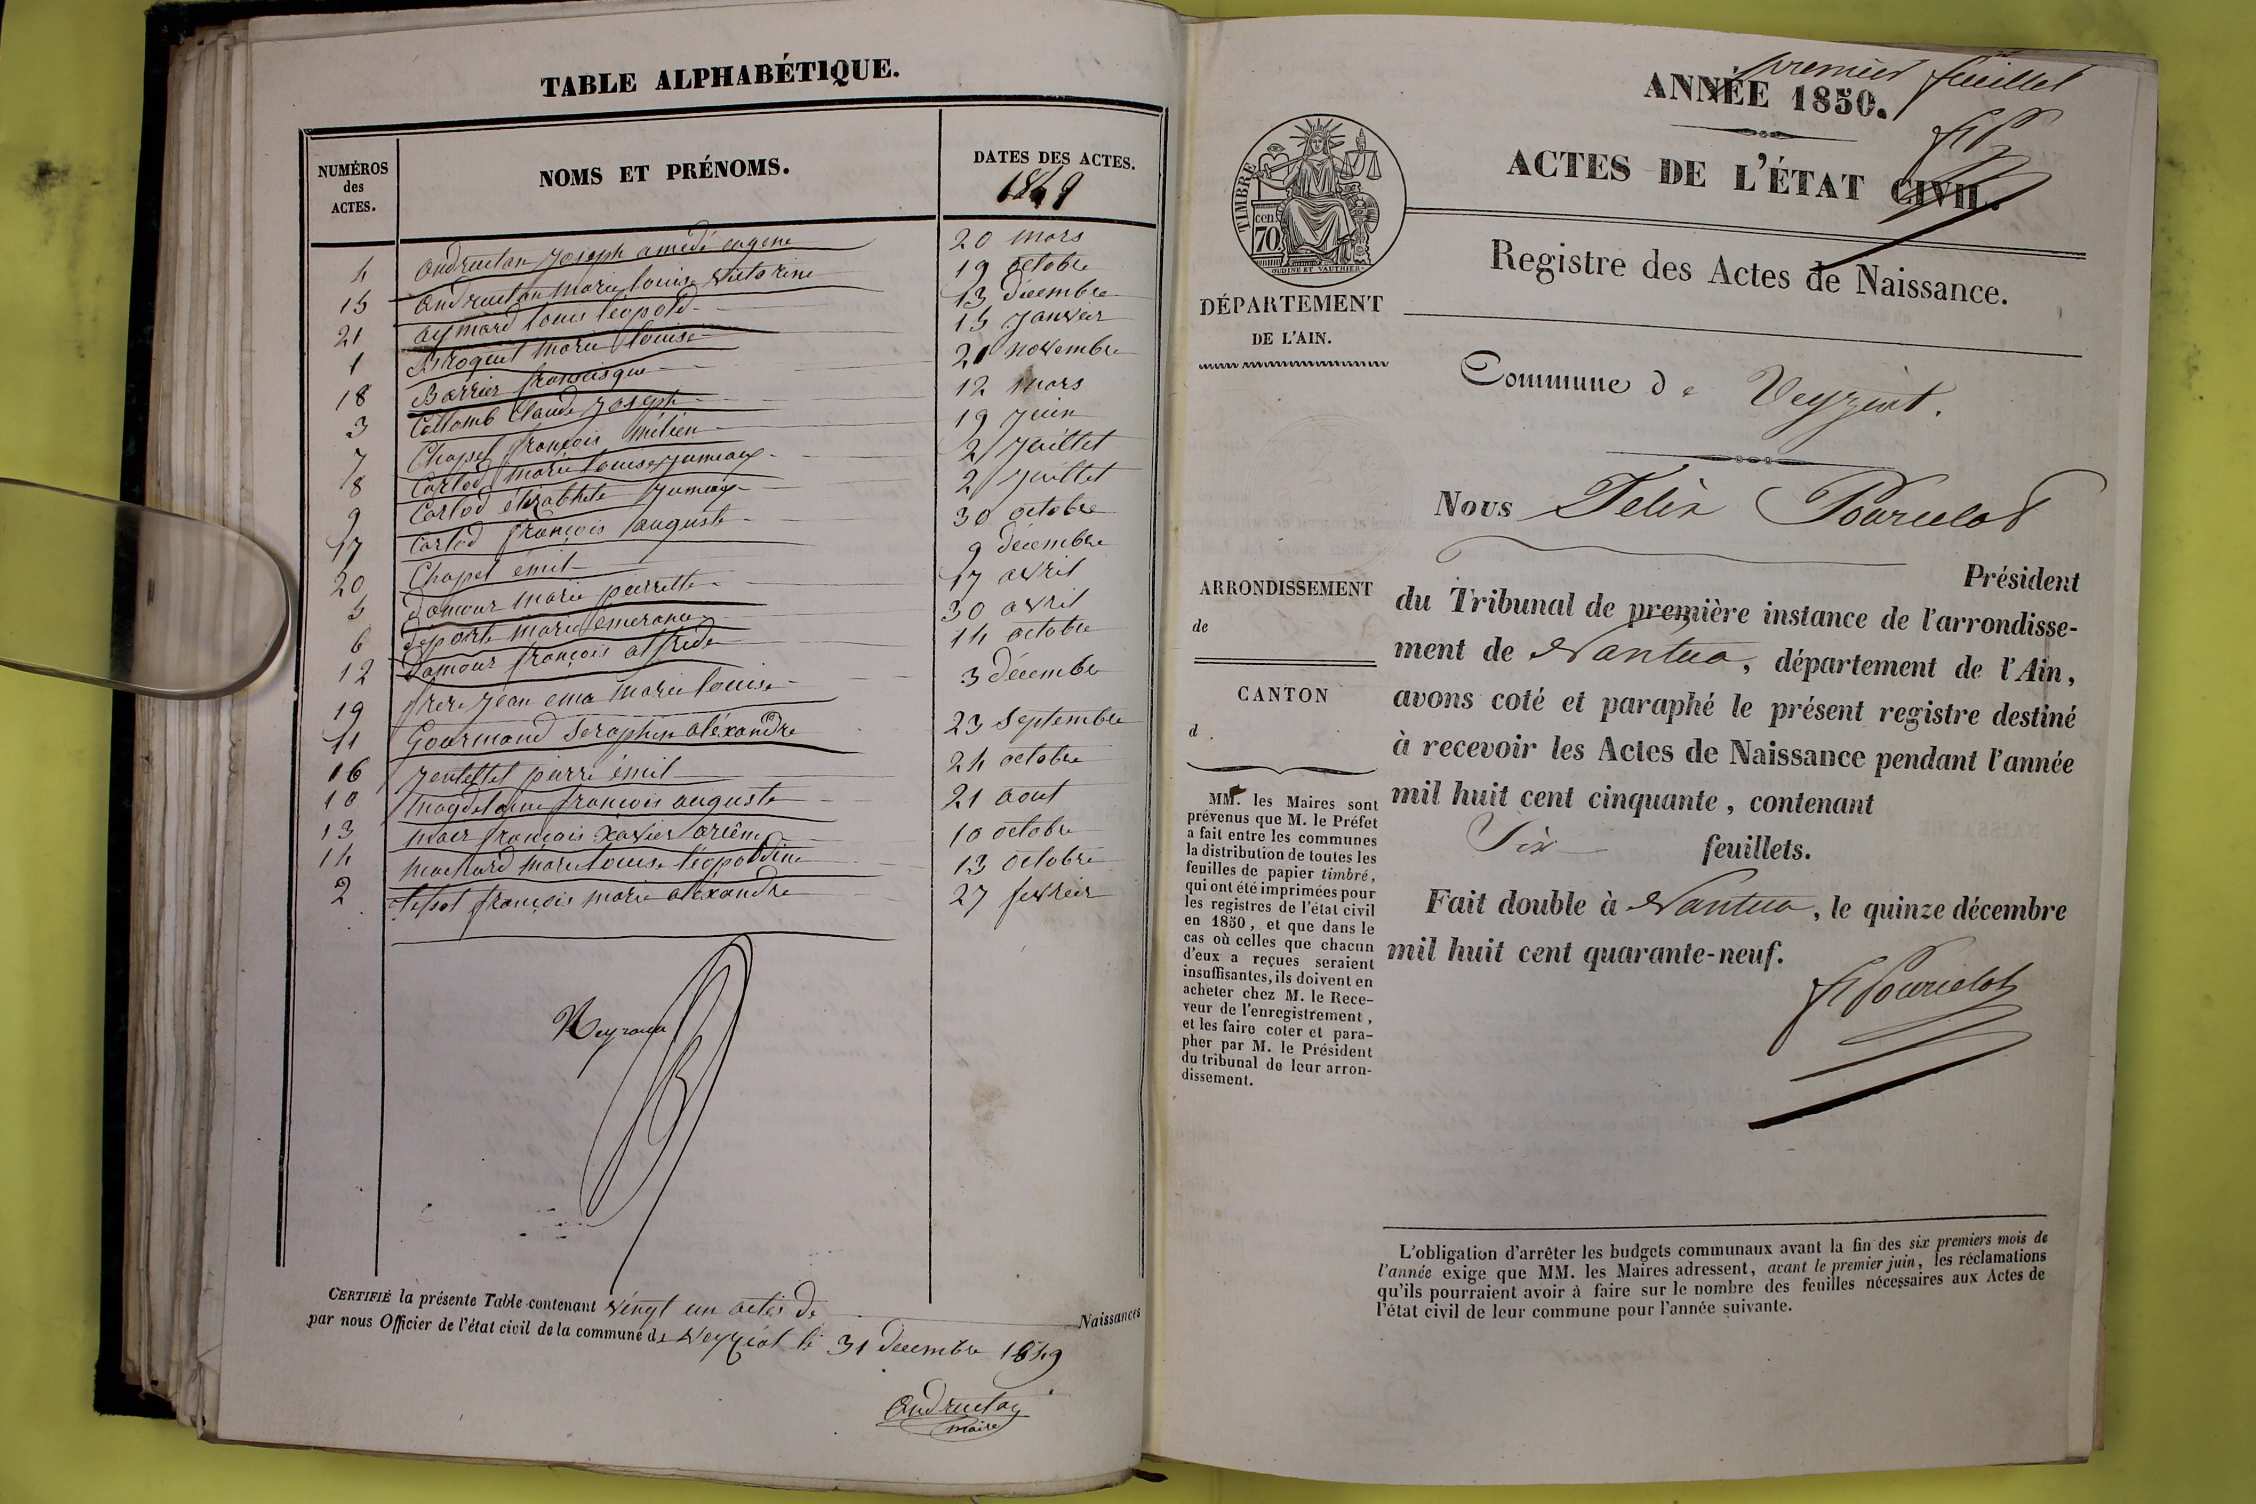 TABLE ALPHABÉTIQUE.
NUMÉROS des ACTES.
NOMS ET PRÉNOMS.
DATES DES ACTES.
1849
4 andruetan Joseph amédé eugene 20 mars
15 andruetan marie louise victorine 19 octobre
21 aymard louis léopold 13 décembre
1 Broquet marie louise 15 janvier
18 Barrier françisque 21 novembre
3 Collomb Claude Joseph 12 mars
7 Chapel françois milien 19 juin
8 Carlod marie louise jumeaux 2 juillet
9 Carlod élizabhete jumeaux 2 juillet
17 Carlod françois auguste 30 octobre
20 Chapel émil 9 décembre
5 Damour marie perrette 17 avril
6 Deporte marie émerance 30 avril
12 Damour françois alfride 14 octobre
19 frere jean ema marie louise 3 décembre
11 Gourmand Seraphin aléxandre 23 septembre
16 Jentellet pierre émil 24 octobre
10 Magdelaine françois auguste 21 aout
13 françois Xavier 10 octobre
14 Machard marie louise léopoldine 13 octobre
2 françois marie aléxandre 27 fevrier
CERTIFIÉ la présente Table contenant vingt un actes de Naissances
par nous Officier de l'état civil de la commune de Veyziat le 31 décembre 1849
Andruetan
maire
premier feuillet
ANNÉE 1850.
ACTES DE L'ÉTAT CIVIL.
TIMBRE
70 cen
OUDINÉ ET VAUTHIER
Registre des Actes de Naissance.
DÉPARTEMENT
DE L'AIN.
Commune de Veyziat.
Nous Félix Pourcelot
Président
ARRONDISSEMENT
de
CANTON
d
du Tribunal de première instance de l'arrondisse-
ment de Nantua, département de l'Ain,
avons coté et paraphé le présent registre destiné
à recevoir les Actes de Naissance pendant l'année
mil huit cent cinquante, contenant
Six feuillets.
Fait double à Nantua, le quinze décembre
mil huit cent quarante-neuf.
f Pourcelot
MM. les Maires sont
prévenus que M. le Préfet
a fait entre les communes
la distribution de toutes les
feuilles de papier timbré,
qui ont été imprimées pour
les registres de l'état civil
en 1850, et que dans le
cas où celles que chacun
d'eux a reçues seraient
insuffisantes, ils doivent en
acheter chez M. le Rece-
veur de l'enregistrement,
et les faire coter et para-
pher par M. le Président
du tribunal de leur arron-
dissement.
L'obligation d'arrêter les budgets communaux avant la fin des six premiers mois de
l'année exige que MM. les Maires adressent, avant le premier juin, les réclamations
qu'ils pourraient avoir à faire sur le nombre des feuilles nécessaires aux Actes de
l'état civil de leur commune pour l'année suivante.